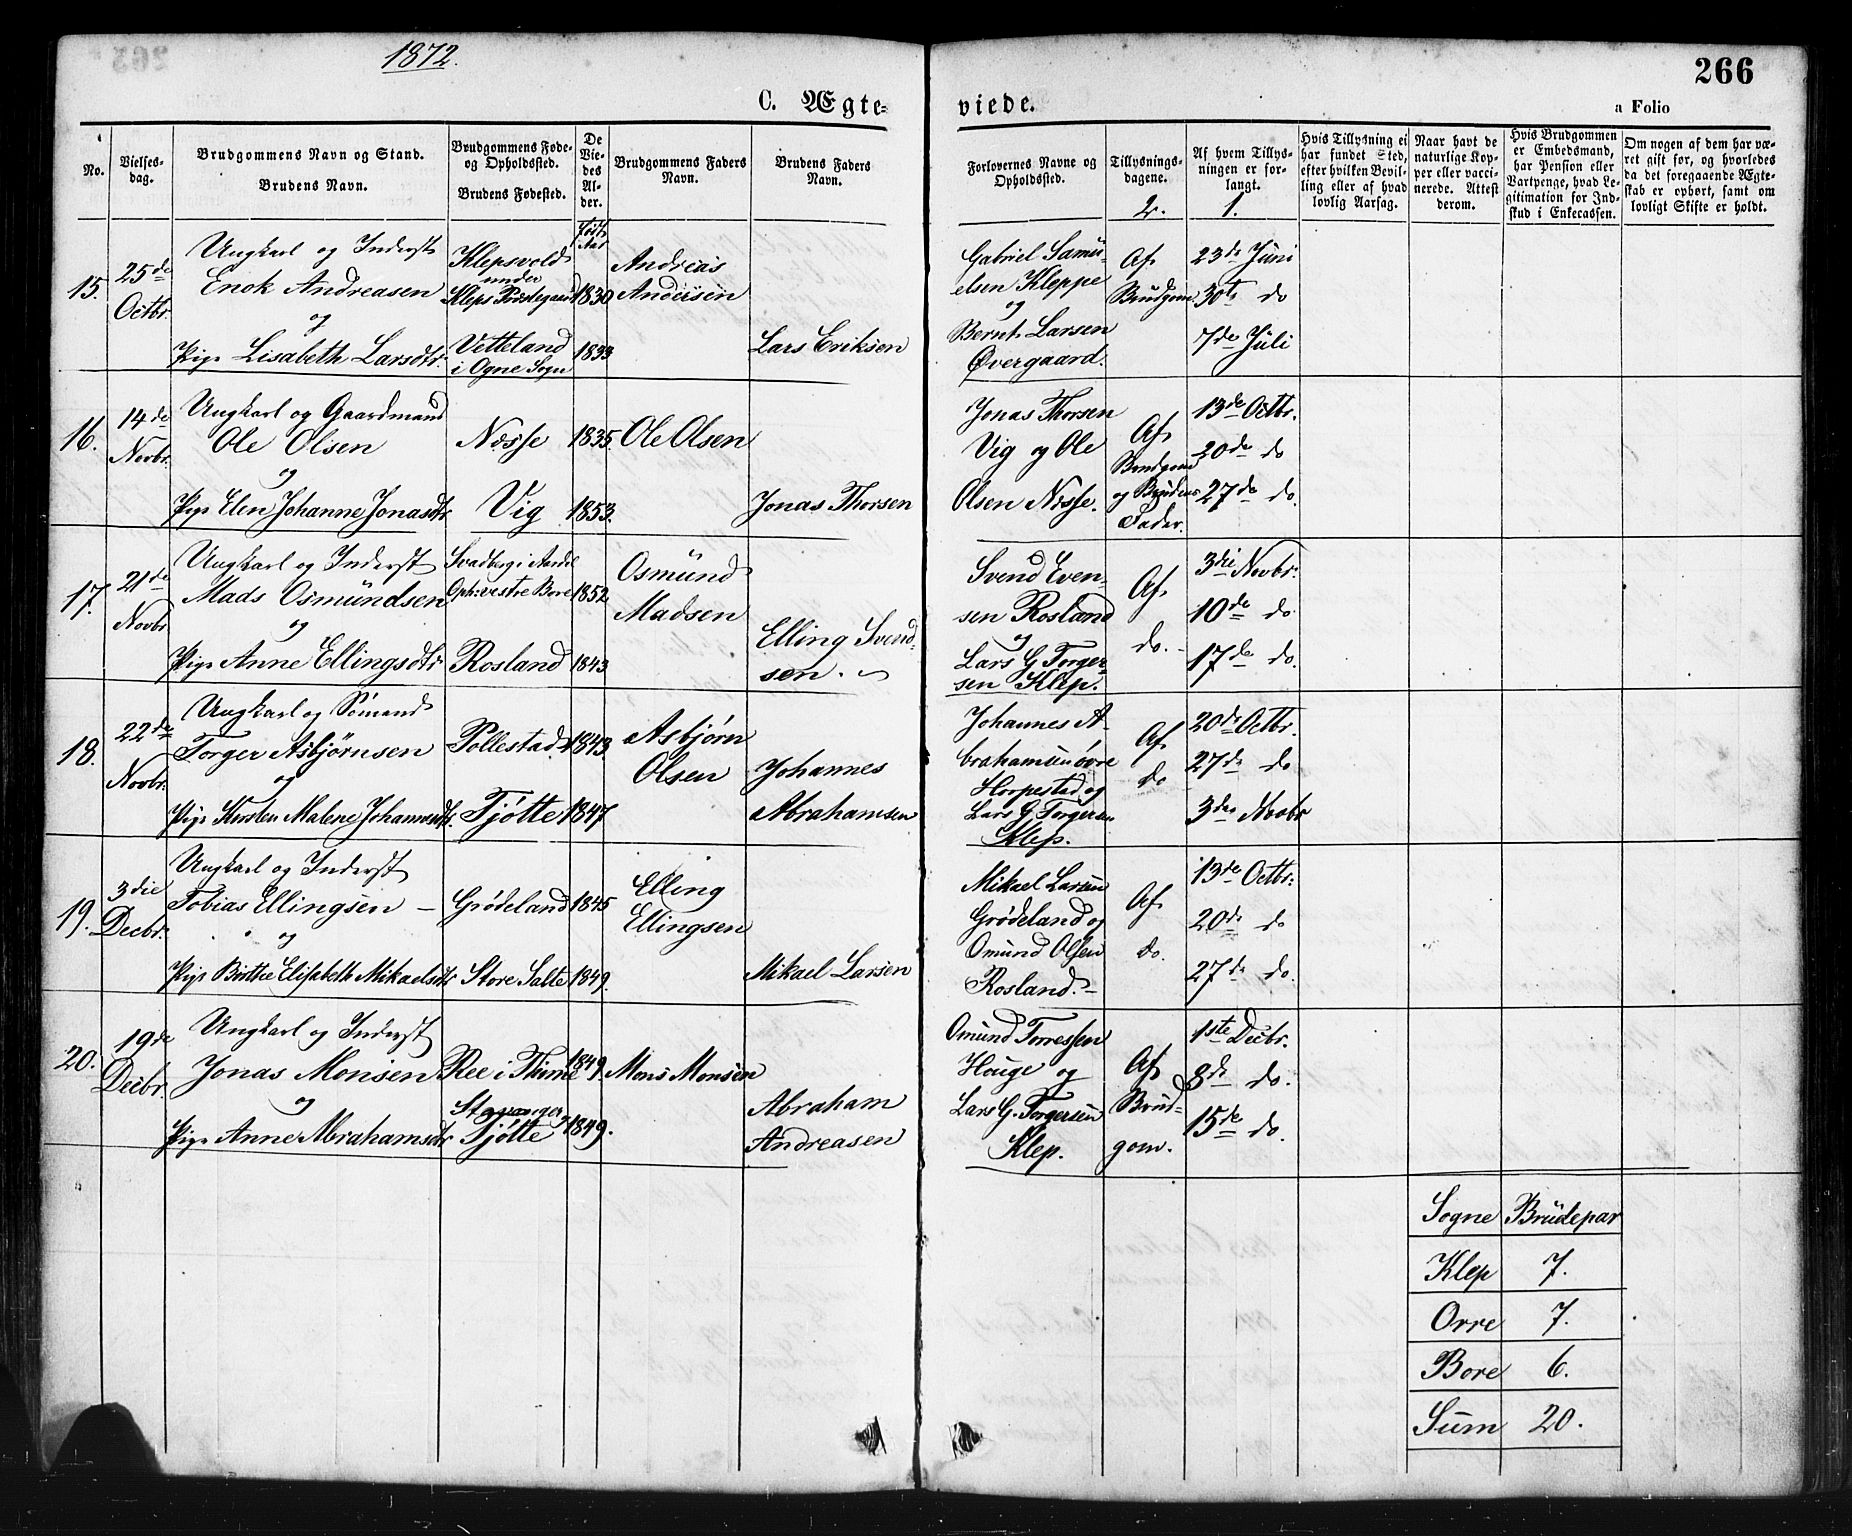 1872.
266
C. Ægte-
viede.
a Folio
No.
Vielses-
dag.
Brudgommens Navn og Stand.
Brudens Navn.
Brudgommens Føde-
og Opholdssted.
Brudens Fødested.
De
Vie-
des
Al-
der.
Brudgommens Faders
Navn.
Brudens Faders
Navn.
Forlovernes Navne og
Opholdssted.
Tillysnings-
dagene.
2.
Af hvem Tillys-
ningen er for-
langt.
1.
Hvis Tillysning ei
har fundet Sted,
efter hvilken Bevil-
ling eller af hvad
lovlig Aarsag.
Naar havt de
naturlige Kop-
per eller vacci-
nerede. Attest
derom.
Hvis Brudgommen
er Embedsmand,
har Pension eller
Vartpenge, hvad Le-
gitimation for Ind-
skud i Enkecassen.
Om nogen af dem har væ-
ret gift før, og hvorledes
da det foregaaende Ægte-
skab er ophørt, samt om
lovligt Skifte er holdt.
Født
Aar
15.
25de
Octbr.
Ungkarl og Inderst
Enok Andreasen
og
Pige Lisabeth Larsdtr.
Klepsvold
under
Kleps Præstegaard
Vetteland
i Ogne Sogn
1830
1833
Andreas
Andersen
Lars Eriksen
Gabriel Samü-
elsen Kleppe
og
Bernt Larsen
Øvergaard.
Af
Brudgom
23de Juni
30te do
7de Juli
16.
14de
Novbr.
Ungkarl og Gaardmand
Ole Olsen
og
Pige Elen Johanne Jonasdtr
Næsse
Vig
1835.
1853.
Ole Olsen
Jonas Thorsen
Jonas Thorsen
Vig og Ole
Olsen Næsse.
Af
Brudgom
og Brudens
Fader.
13de Octbr.
20de do
27de do.
17.
21de
Novbr
Ungkarl og Inderst
Mads Osmündsen
og
Pige Anne Ellingsdtr
Svadberg i
Oph: vestre Bore
Rosland
1852
1843
Osmünd
Madsen
Elling Svend-
sen.
Svend Even-
sen Rosland
og
Lars G Torger-
sen Klep.
Af
do.
3die Novbr.
10de do
17de do.
18.
22de
Novbr.
Ungkarl og Sömand
Torger Asbjørnsen
og
Pige Kirsten Malene Johannesdtr.
Pollestad
Tjøtte
1843.
1847
Asbjørn
Olsen
Johannes
Abrahamsen
Johannes A-
brahamsen övre
Horpestad og
Lars G Torgersen
Klep.
Af
do
20de Octbr.
27de do
3die Novbr
19.
3die
Decbr.
Ungkarl og Inderst
Tobias Ellingsen –
og
Pige Birthe Elisabeth Mikaelsdtr
Grödeland
Store Salte
1845
1849.
Elling
Ellingsen
Mikael Larsen
Mikael Larsen
Grödeland og
Omund Olsen
Rosland. –
Af
do.
13de Octbr:
20de do
27de do.
20.
19de
Decbr
Ungkarl og Inderst
Jonas Monsen
og
Pige Anne Abrahamsdtr
Ree i Thime
Stavanger
Tjøtte
1849.
1849.
Mons Monsen
Abraham
Andreasen
Omund Torressen
Houge og
Lars G. Torgersen
Klep.
Af
Brud-
gom.
1ste Decbr.
8de do.
15de do.
Sogne Brüdepar
Klep 7.
Orre 7.
Bore 6.
Süm 20.